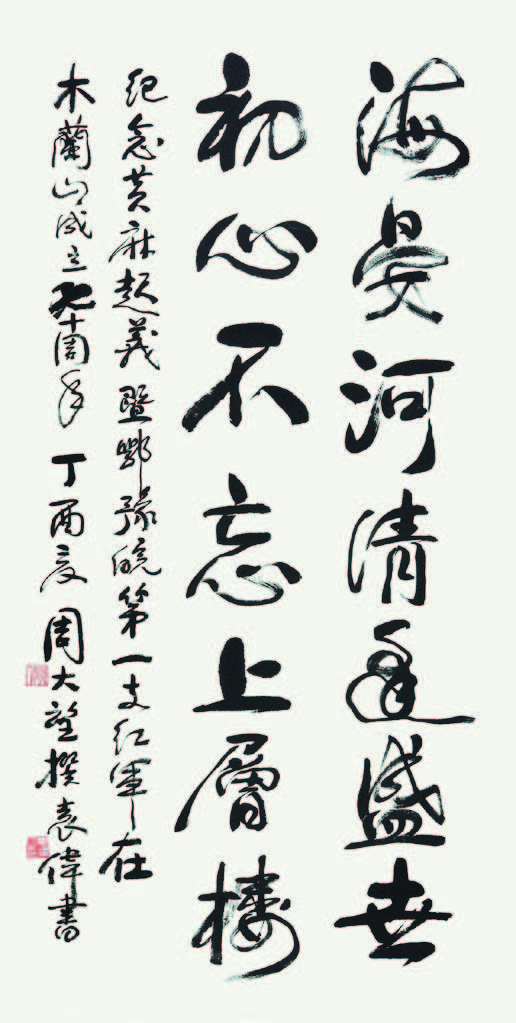 海晏河清逢盛世
初心不忘上層樓
紀念黄麻起義暨鄂豫皖第一支红軍在
木蘭山成立九十周年 丁酉夏 周大望撰 袁偉書